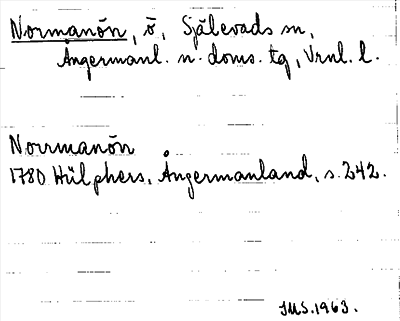 Normanön, ö, Själevads sn,
Ångermanl. n. doms. tg, Vrnl. l.
Norrmanön
1780 Hülphers, Ångermanland, s. 242.
JMS. 1963.